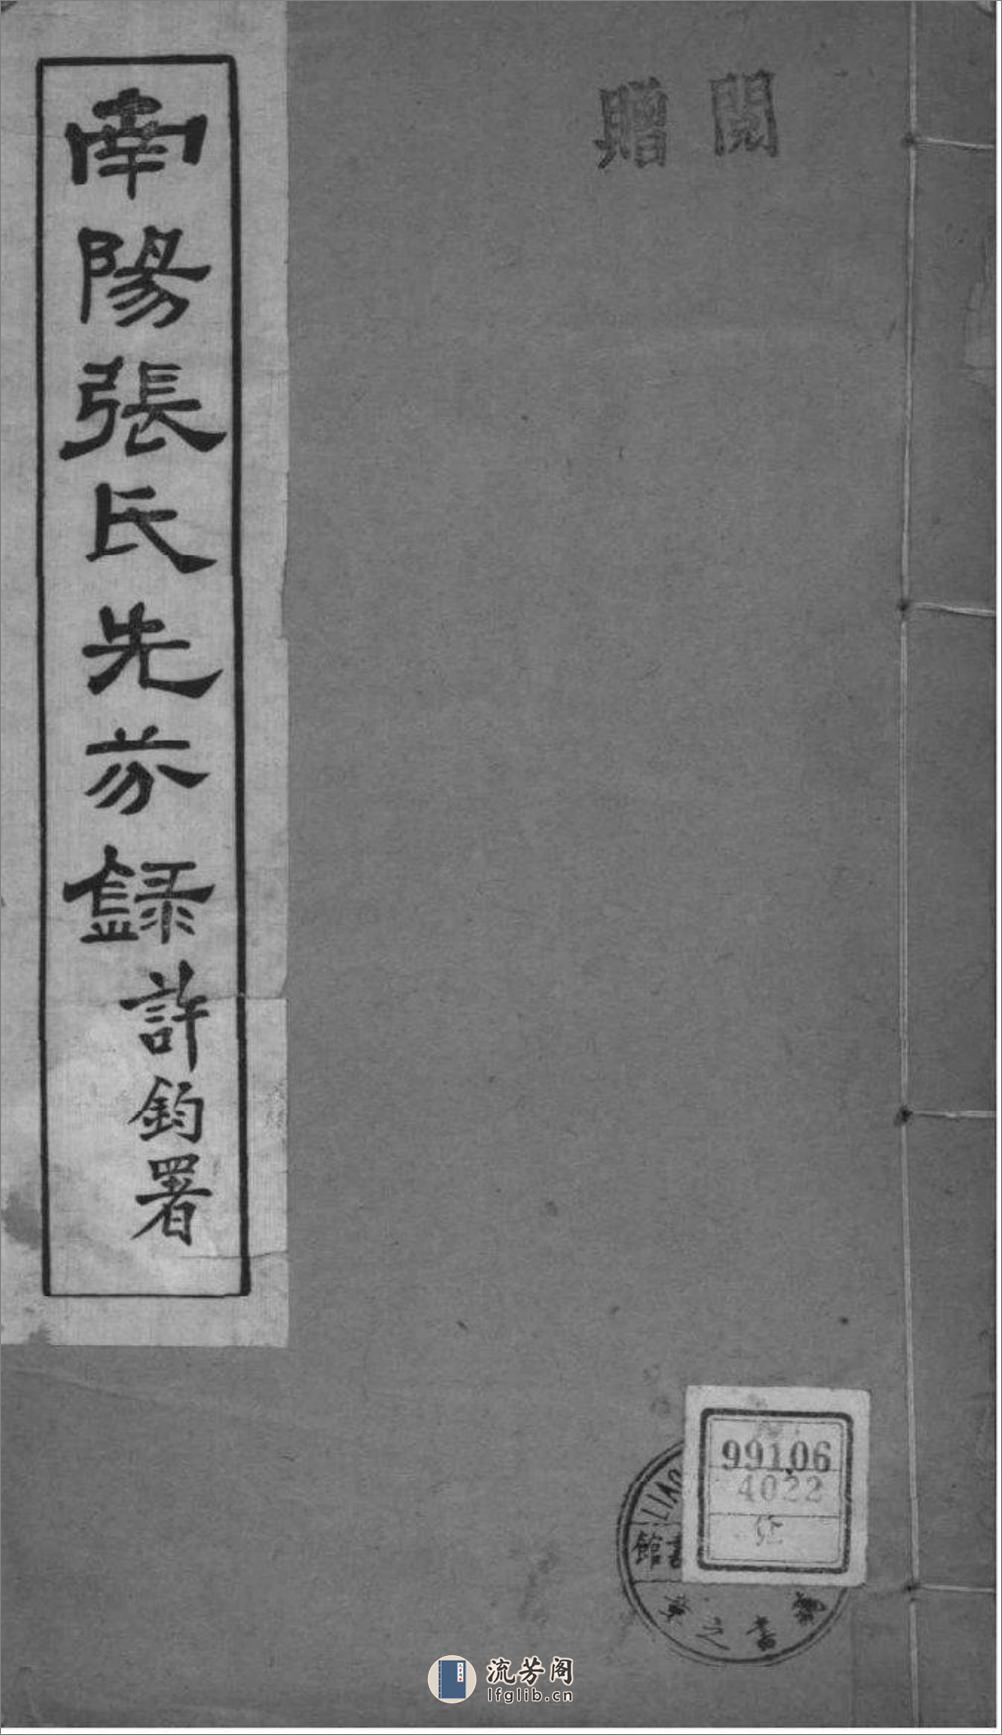 閱贈
南陽張氏先芬錄
許鈞署
99106
4022
館
書之章
流芳阁
lfglib.cn